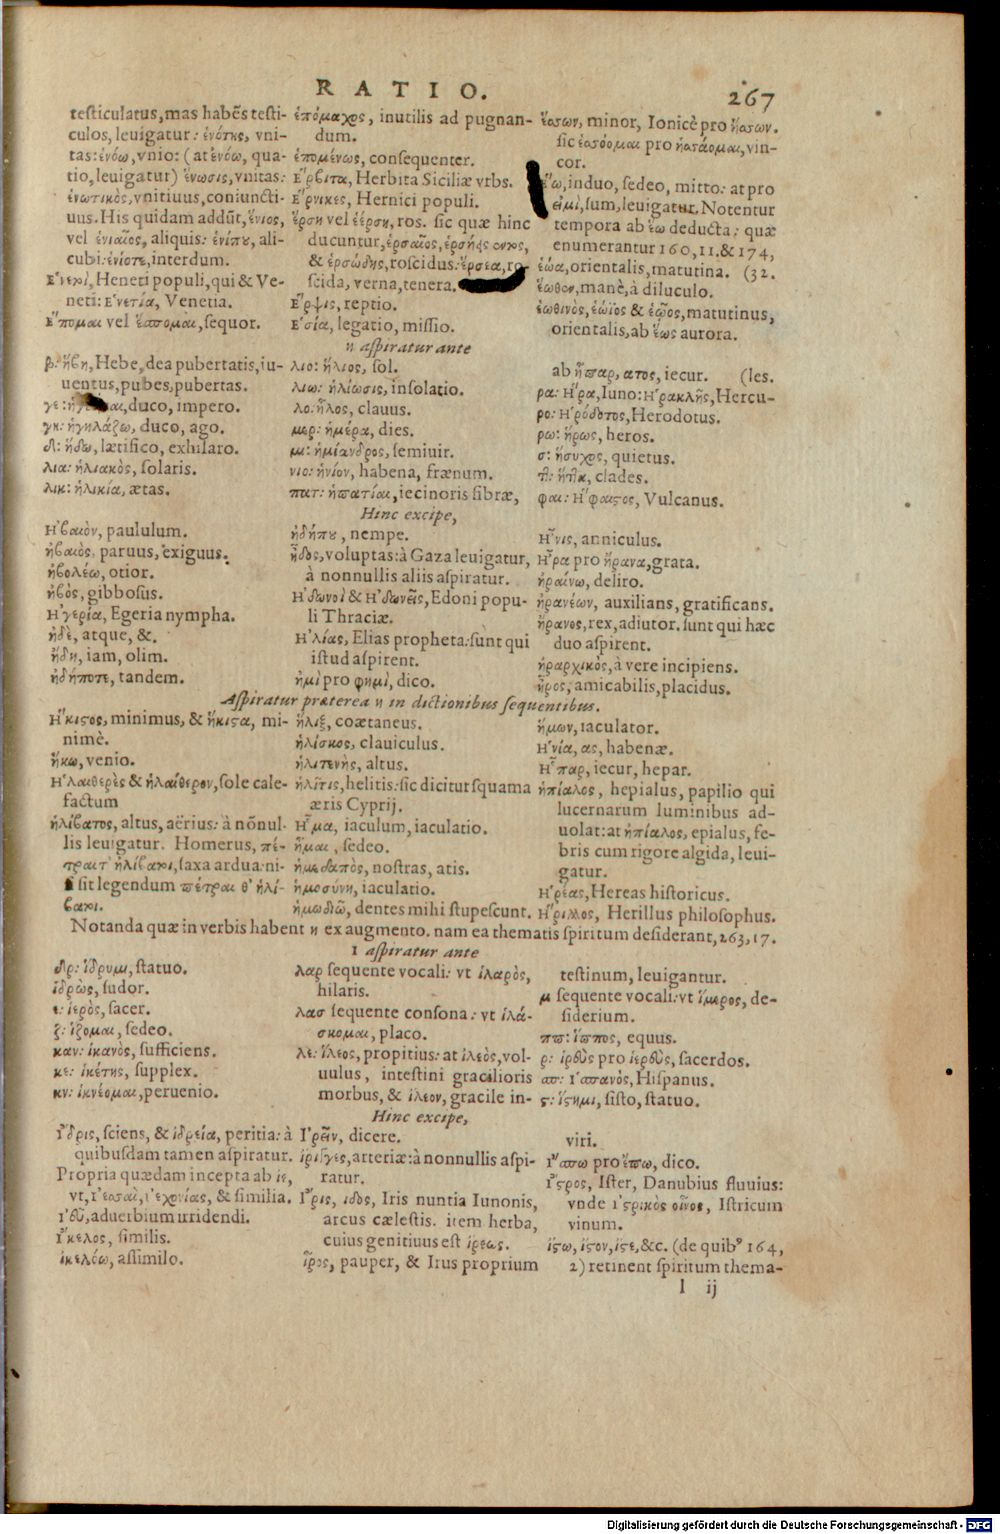 RATIO. 267
testiculatus, mas habēs testi-
culos, leuigatur: ἑνότης, vni-
tas: ἑνόω, vnio: (at ἐνόω, qua-
tio, leuigatur) ἕνωσις, vnitas:
ἑνωτικὸς, vnitiuus, coniuncti-
uus. His quidam addūt, ἕνιος,
vel ἑνιαῖος, aliquis: ἑνίπȣ, ali-
cubi: ἑνίοτε, interdum.
Ἑνετοὶ, Heneti populi, qui & Ve-
neti: Ἑνετία, Venetia.
Ἕπομαι vel ἕσπομαι, sequor.
ἑπόμαχος, inutilis ad pugnan-
dum.
ἑπομένως, consequenter.
Ἕρβιτα, Herbita Siciliæ vrbs.
Ἕρνικες, Hernici populi.
ἕρση vel ἑέρση, ros. sic quæ hinc
ducuntur, ἑρσαῖος, ἑρσήεις
& ἑρσώδης, roscidus: ἕρσεα, ro-
scida, verna, tenera.
Ἕρψις, reptio.
Ἑσία, legatio, missio.
ἕασων, minor, Ionicè pro ἥασων.
sic ἑασόομαι pro ἡασάομαι, vin-
cor.
ἕω, induo, sedeo, mitto: at pro
εἰμὶ, sum, leuigatur. Notentur
tempora ab ἕω deducta: quæ
enumerantur 160, 11. & 174,
ἑῴα, orientalis, matutina. (32.
ἕωθεν, manè, à diluculo.
ἑωθινὸς, ἑώϊος & ἑῷος, matutinus,
orientalis, ab ἕως aurora.
η aspiratur ante
β: ἥβη, Hebe, dea pubertatis, iu-
uentus, pubes, pubertas.
γε: duco, impero.
γη: ἡγηλάζω, duco, ago.
δ: ἥδω, lætifico, exhilaro.
λια: ἡλιακὸς, solaris.
λικ: ἡλικία, ætas.
λιο: ἥλιος, sol.
λιω: ἡλίωσις, insolatio.
λο: ἧλος, clauus.
μερ: ἡμέρα, dies.
μι: ἡμίανδρος, semiuir.
νιο: ἡνίον, habena, frænum.
πατ: ἡπατίαι, iecinoris fibræ,
ab ἧπαρ, ατος, iecur. (les.
ρα: Ἥρα, Iuno: Ἡρακλῆς, Hercu-
ρο: Ἡρόδοτος, Herodotus.
ρω: ἥρως, heros.
σ: ἥσυχος, quietus.
τ: ἥττα, clades.
φαι: Ἥφαιστος, Vulcanus.
Hinc excipe,
Ἠβαιὸν, paululum.
ἠβαιὸς, paruus, exiguus.
ἠβολέω, otior.
ἠβὸς, gibbosus.
Ἠγερία, Egeria nympha.
ἠδὲ, atque, &.
ἤδη, iam, olim.
ἠδήποτε, tandem.
ἠδήπȣ, nempe.
ἦδος, voluptas: à Gaza leuigatur,
à nonnullis aliis aspiratur.
Ἠδωνοὶ & Ἠδωνεῖς, Edoni popu-
li Thraciæ.
Ἠλίας, Elias propheta: sunt qui
istud aspirent.
ἠμὶ pro φημὶ, dico.
Ἦνις, anniculus.
Ἦρα pro ἤρανα, grata.
ἠραίνω, deliro.
ἠρανέων, auxilians, gratificans.
ἤρανος, rex, adiutor. sunt qui hæc
duo aspirent.
ἠραρχικὸς, à vere incipiens.
ἦρος, amicabilis, placidus.
Aspiratur præterea η in dictionibus sequentibus.
Ἥκιστος, minimus, & ἥκιστα, mi-
nimè.
ἥκω, venio.
Ἡλαιθερὲς & ἡλαίθερον, sole cale-
factum
ἡλίβατος, altus, aërius: à nōnul-
lis leuigatur. Homerus, πέ-
τραιτ' ἡλίβατοι, saxa ardua: ni-
sit legendum πέτραι θ' ἡλί-
βατοι.
ἧλιξ, coætaneus.
ἡλίσκος, clauiculus.
ἡλιτενὴς, altus.
ἡλῖτις, helitis: sic dicitur squama
æris Cyprij.
Ἧμα, iaculum, iaculatio.
ἧμαι, sedeo.
ἡμεδαπὸς, nostras, atis.
ἡμοσύνη, iaculatio.
ἡμωδιῶ, dentes mihi stupescunt.
ἥμων, iaculator.
Ἡνία, ας, habenæ.
Ἧπαρ, iecur, hepar.
ἡπίαλος, hepialus, papilio qui
lucernarum luminibus ad-
uolat: at ἠπίαλος, epialus, fe-
bris cum rigore algida, leui-
gatur.
Ἡρέας, Hereas historicus.
Ἥριλλος, Herillus philosophus.
Notanda quæ in verbis habent η ex augmento. nam ea thematis spiritum desiderant, 263, 17.
ι aspiratur ante
δρ: ἵδρυμι, statuo.
ἱδρὼς, sudor.
ε: ἱερὸς, sacer.
ζ: ἵζομαι, sedeo.
καν: ἱκανὸς, sufficiens.
κε: ἱκέτης, supplex.
κν: ἱκνέομαι, peruenio.
λαρ sequente vocali: vt ἱλαρὸς,
hilaris.
λασ sequente consona: vt ἱλά-
σκομαι, placo.
λε: ἵλεος, propitius: at ἰλεὸς, vol-
uulus, intestini gracilioris
morbus, & ἰλεον, gracile in-
testinum, leuigantur.
μ sequente vocali: vt ἵμερος, de-
siderium.
ππ: ἵππος, equus.
ρ: ἱρεὺς pro ἱερεὺς, sacerdos.
σπ: Ἱσπανὸς, Hispanus.
στ: ἵστημι, sisto, statuo.
Hinc excipe,
Ἴδρις, sciens, & ἰδρεία, peritia: à
quibusdam tamen aspiratur.
Propria quædam incepta ab ιε,
vt, Ἰεσσαὶ, Ἰεχονίας, & similia.
Ἰεῦ, aduerbium irridendi.
Ἴκελος, similis.
ἰκελόω, assimilo.
Ἰρεῖν, dicere.
ἴριγγες, arteriæ: à nonnullis aspi-
ratur.
Ἶρις, ιδος, Iris nuntia Iunonis,
arcus cælestis. item herba,
cuius genitiuus est ἴρεως.
ἶρος, pauper, & Irus proprium
viri.
Ἴσπω pro ἔσπω, dico.
Ἴστρος, Ister, Danubius fluuius:
vnde Ἰστρικὸς οἶνος, Istricum
vinum.
ἴστω, ἴστον, ἴστε, &c. (de quibꝰ 164,
2) retinent spiritum thema-
l ij
Digitalisierung gefördert durch die Deutsche Forschungsgemeinschaft - DFG